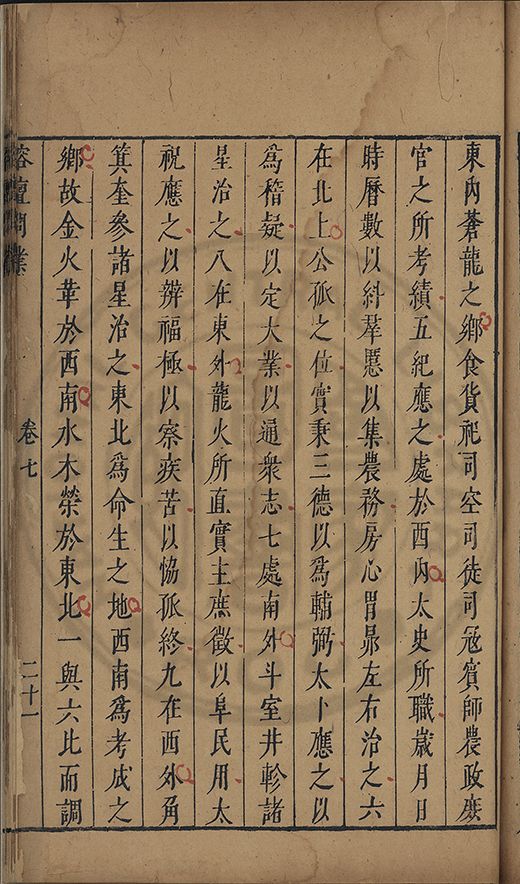 東內蒼龍之鄉食貨祀司空司徒司冦賓師農政庶
官之所考績五紀應之處於西內太史所職歲月日
時曆數以糾羣慝以集農務房心胃昴左右治之六
在北上公孤之位實秉三德以為輔弼太卜應之以
為稽疑以定大業以通衆志七處南外斗室井軫諸
星治之八在東外龍火所直實主庶徵以阜民用太
祝應之以辨福極以察疾苦以恊孤終九在西外角
箕奎參諸星治之東北為命生之地西南為考成之
鄉故金火革於西南水木榮於東北一與六比而調
榕壇問業
卷七
二十一